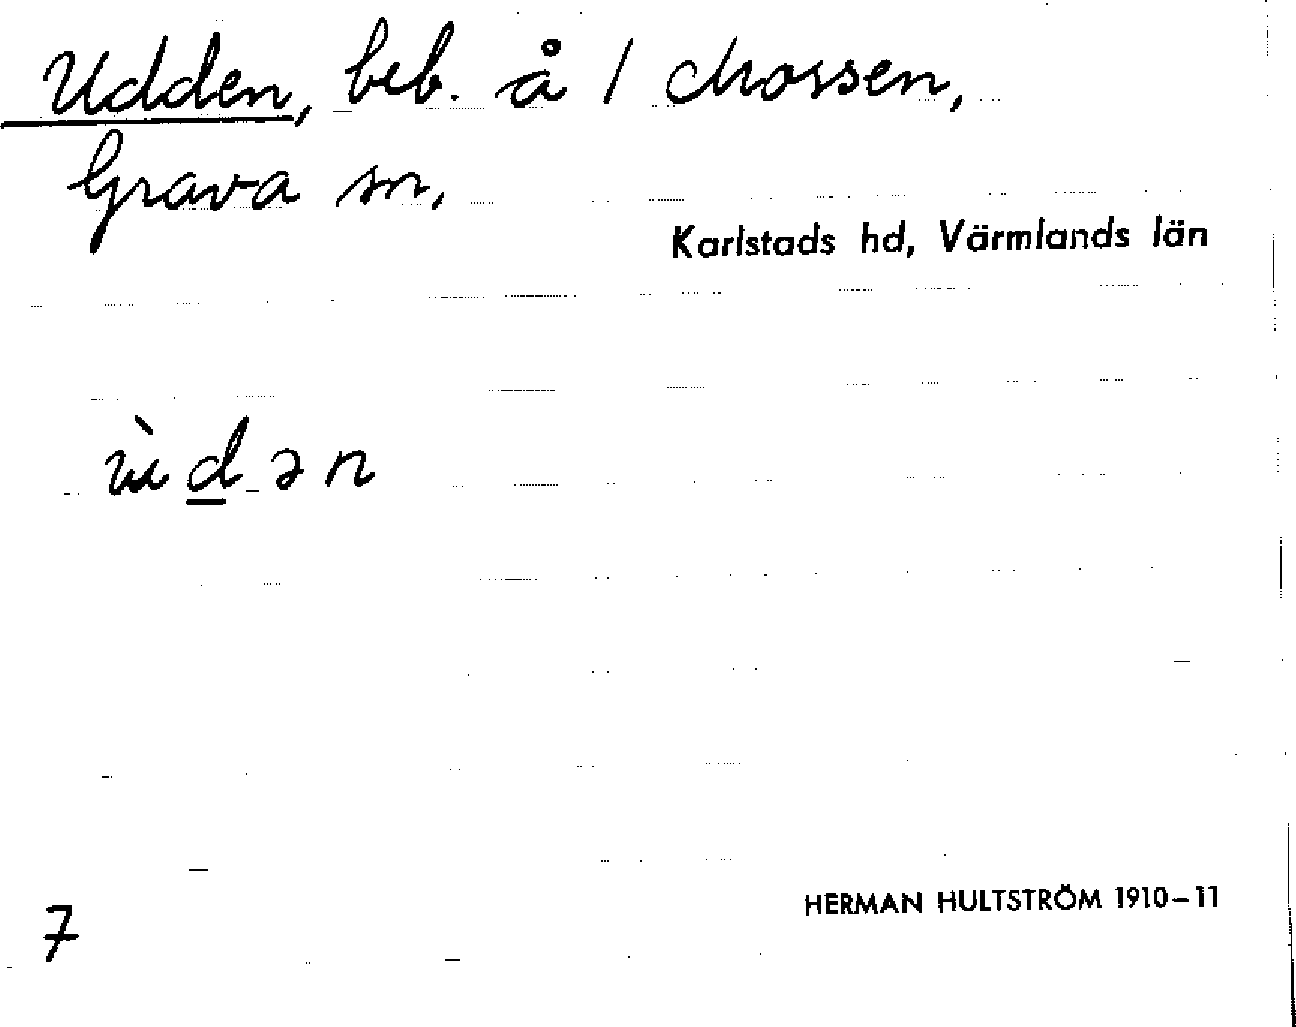 Udden, beb. å 1 Mossen,
Grava sn,
Karlstads hd, Värmlands län
ùd̲ən
HERMAN HULTSTRÖM 1910–11
7